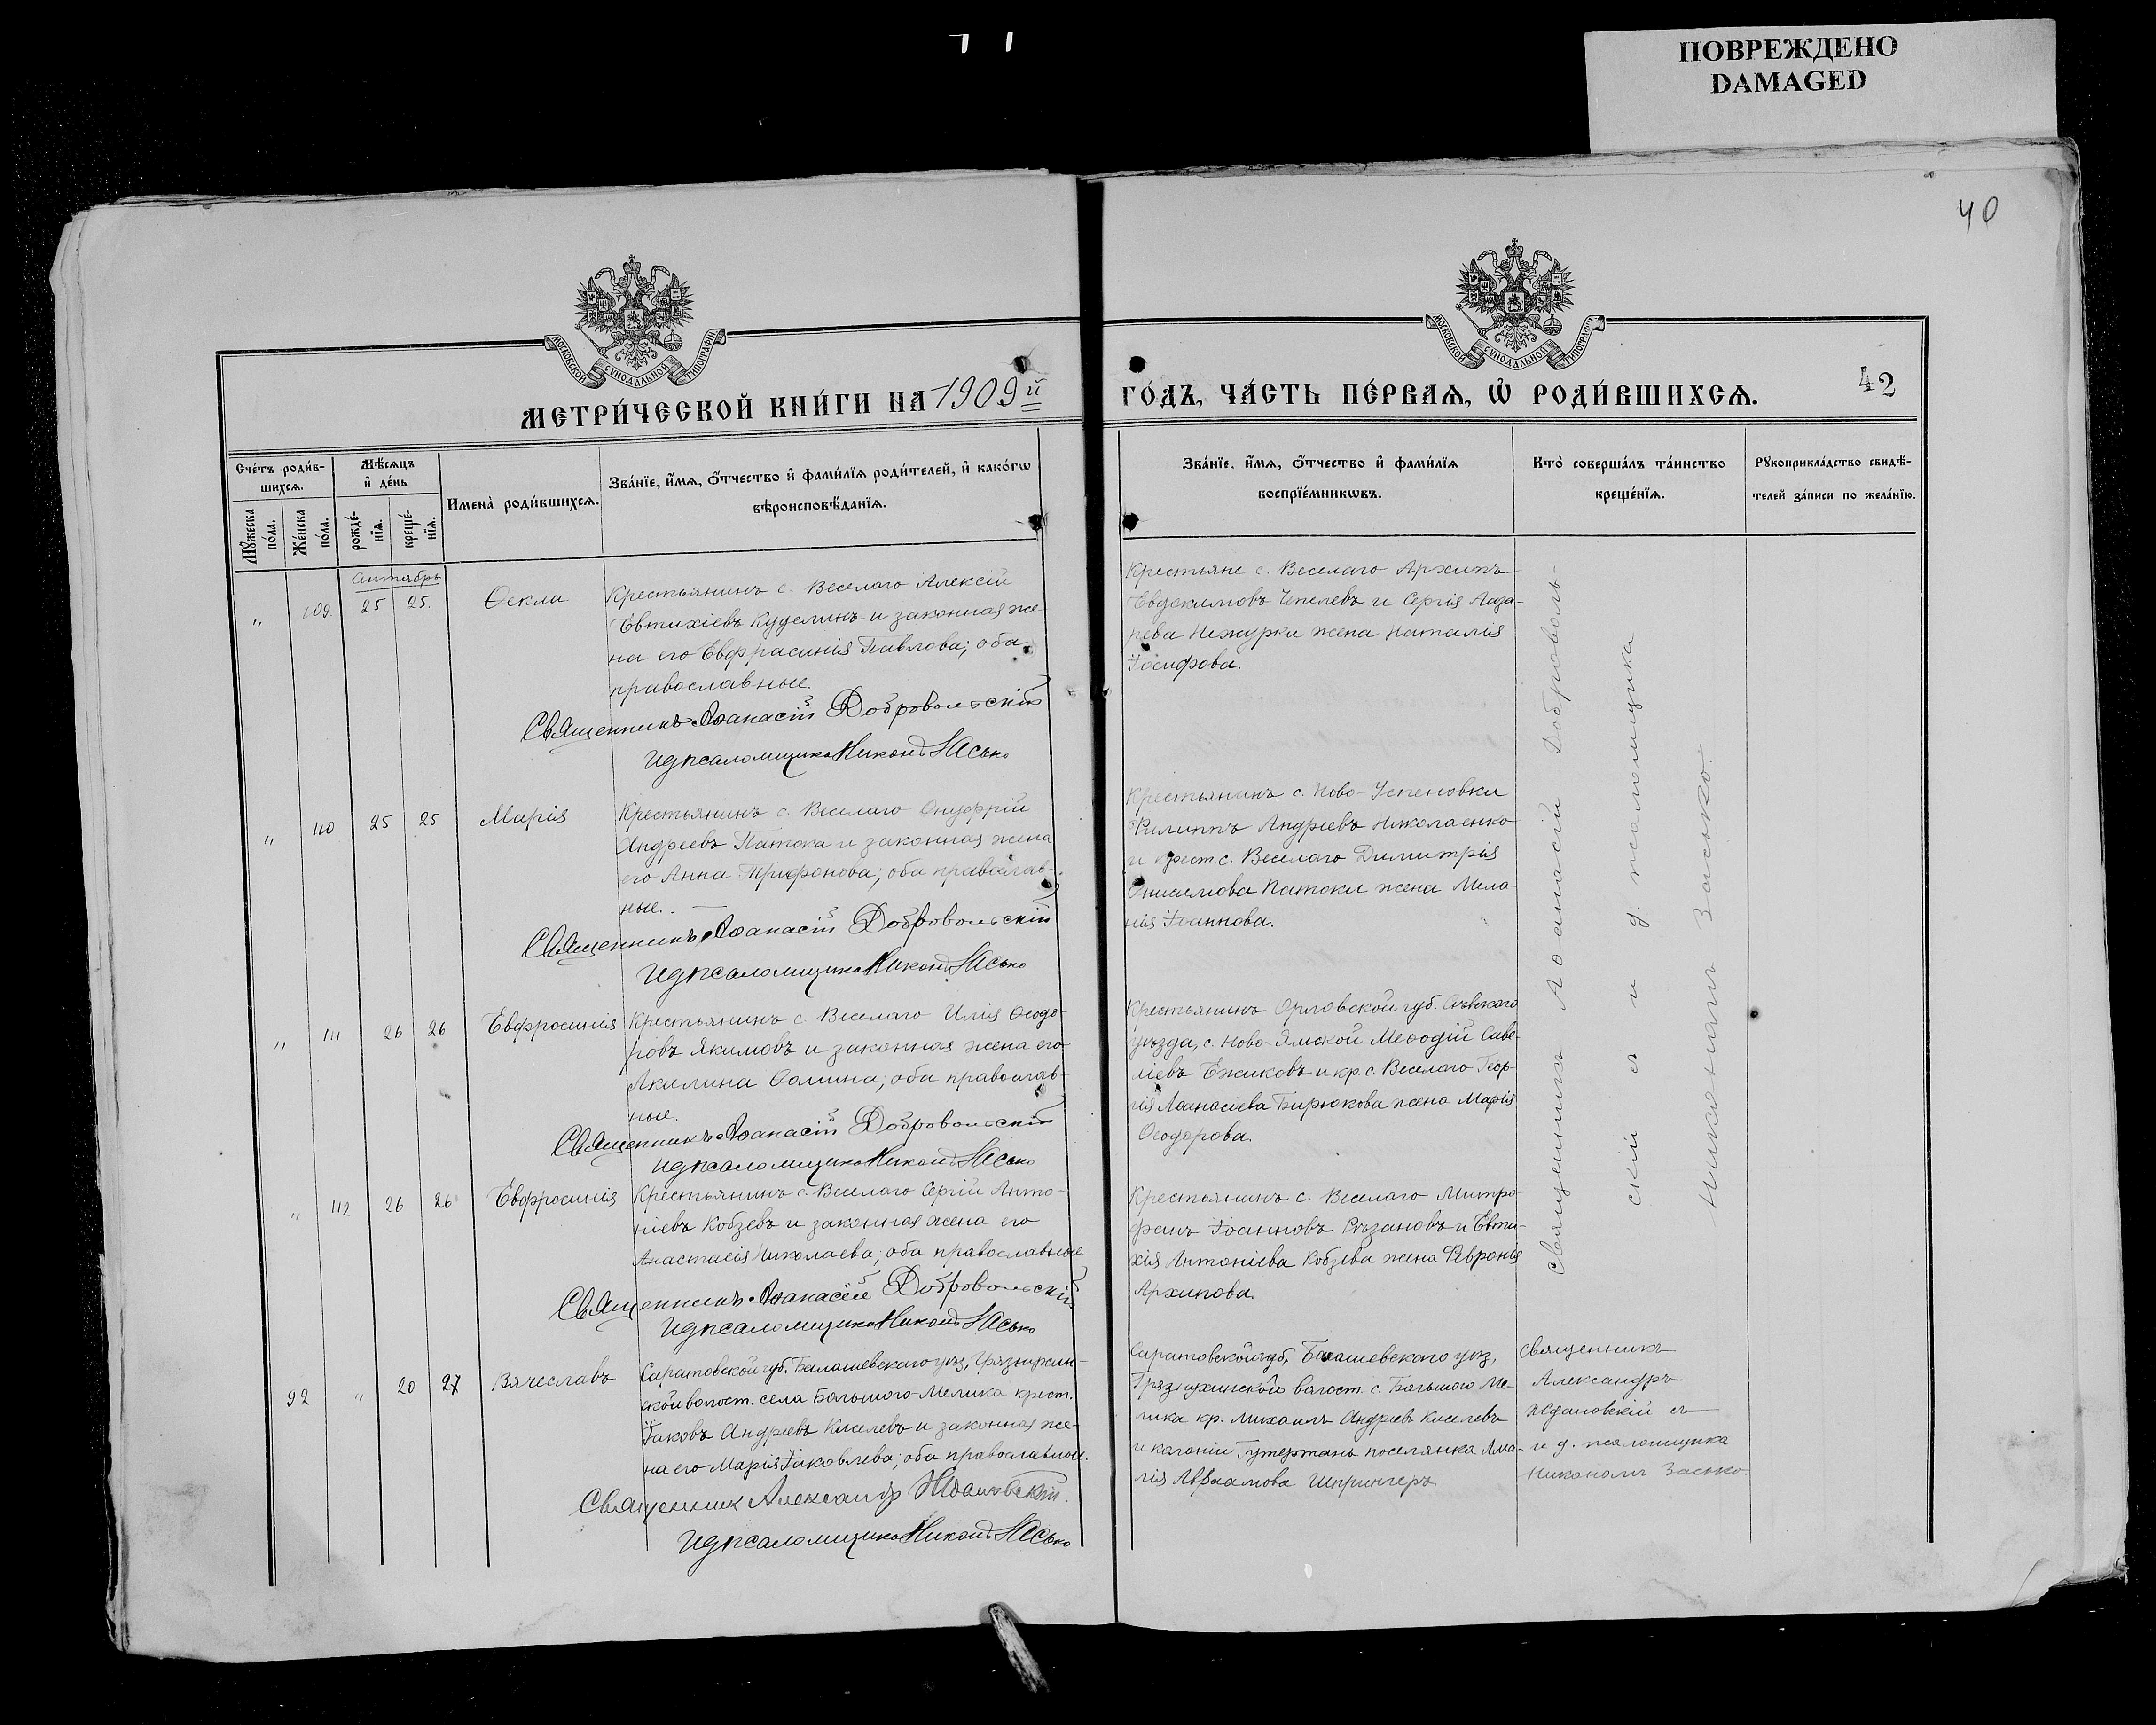 ПОВРЕЖДЕНО
DAMAGED
40
МОСКОВСКОЙ СѴНОДАЛЬНОЙ ТИПОГРАФІИ
МОСКОВСКОЙ СѴНОДАЛЬНОЙ ТИПОГРАФІИ
МЕТРИ́ЧЕСКОЙ КНИ́ГИ НА 1909й
ГО́ДЪ, ЧА́СТЬ ПЕ́РВАѦ, Ѽ РОДИ́ВШИХСѦ.
42
Сче́тъ роди́в-
шихсѧ.
Мꙋ́жеска по́ла.
Же́нска по́ла.
Мѣ́сѧцъ и҆ де́нь
рожде́-
нїѧ.
креще́-
нїѧ.
Имена̀ роди́вшихсѧ.
Зва́нїе, и҆́мѧ, ѻ҆́тчество и҆ фами́лїѧ роди́телей, и҆ како́гѡ
вѣроисповѣ́данїѧ.
Зва́нїе, и҆́мѧ, ѻ҆́тчество и҆ фами́лїѧ
воспрїе́мникѡвъ.
Кто̀ соверша́лъ та́инство
креще́нїѧ.
Рꙋкоприкла́дство свидѣ́-
телей за́писи по жела́нїю.
109. 25 25. Ѳекла
Крестьянинъ с. Веселаго Алексій
Евтихіевъ Куделинъ и законная же-
на его Евфрасинія Павлова; оба
православные.
Священникъ Аѳанасій Добровольскій
И д псаломщика Никонъ Засько
Крестьяне с. Веселаго Архипъ
Евдокимовъ Чепелевъ и Сергія Лаза-
рева Нежурки жена Наталія
Іосифова.
" 110 25 25 Марія
Крестьянинъ с. Веселаго Онуфрій
Андреевъ Патока и законная жена
его Анна Трифонова; оба православ-
ные.
Священникъ Аѳанасій Добровольскій
И д псаломщика Никонъ Засько
Крестьянинъ с. Ново-Успеновки
Филиппъ Андреевъ Николаенко
и крест. с. Веселаго Димитрія
Онисимова Патоки жена Мела-
нія Іоаннова.
" 111 26 26 Евфросинія
Крестьянинъ с. Веселаго Илія Ѳеодо-
ровъ Якимовъ и законная жена его
Акилина Ѳомина; оба православ-
ные.
Священникъ Аѳанасій Добровольскій
И д псаломщика Никонъ Засько
Крестьянинъ Орловской губ. Сѣвскаго
уѣзда, с. Ново-Ямской Меѳодій Саве-
ліевъ Ежиковъ и кр. с. Веселаго Геор-
гія Аѳанасіева Бирюкова жена Марія
Ѳеодорова.
" 112 26 26 Евфросинія
Крестьянинъ с. Веселаго Сергій Анто-
ніевъ Кобзевъ и законная жена его
Анастасія Николаева; оба православные
Священникъ Аѳанасій Добровольскій
И д псаломщика Никонъ Засько
Крестьянинъ с. Веселаго Митро-
фанъ Іоанновъ Рѣзановъ и Евти-
хія Антоніева Кобзева жена Февронія
Архипова.
Священникъ Аѳанасій Доброволь-
скій съ и д. псаломщика
Никономъ Засько.
92 " 20 27 Вячеславъ
Саратовской губ. Балашевскаго уѣз, Грязнухин-
ской волост. села Большого Мелика крест.
Іаковъ Андреевъ Киселевъ и законная же-
на его Марія Іаковлева; оба православные.
Священник Александр Ждановскій.
И д псаломщика Никонъ Засько
Саратовской губ, Балашевскаго уѣз,
Грязнухинской волост. с. Большого Ме-
лика кр. Михаилъ Андреевъ Киселевъ
и колоніи поселянка Ама-
лія Авраамова Шпрингеръ
Священникъ
Александръ
Ждановскій съ
и д. псаломщика
Никономъ Засько.